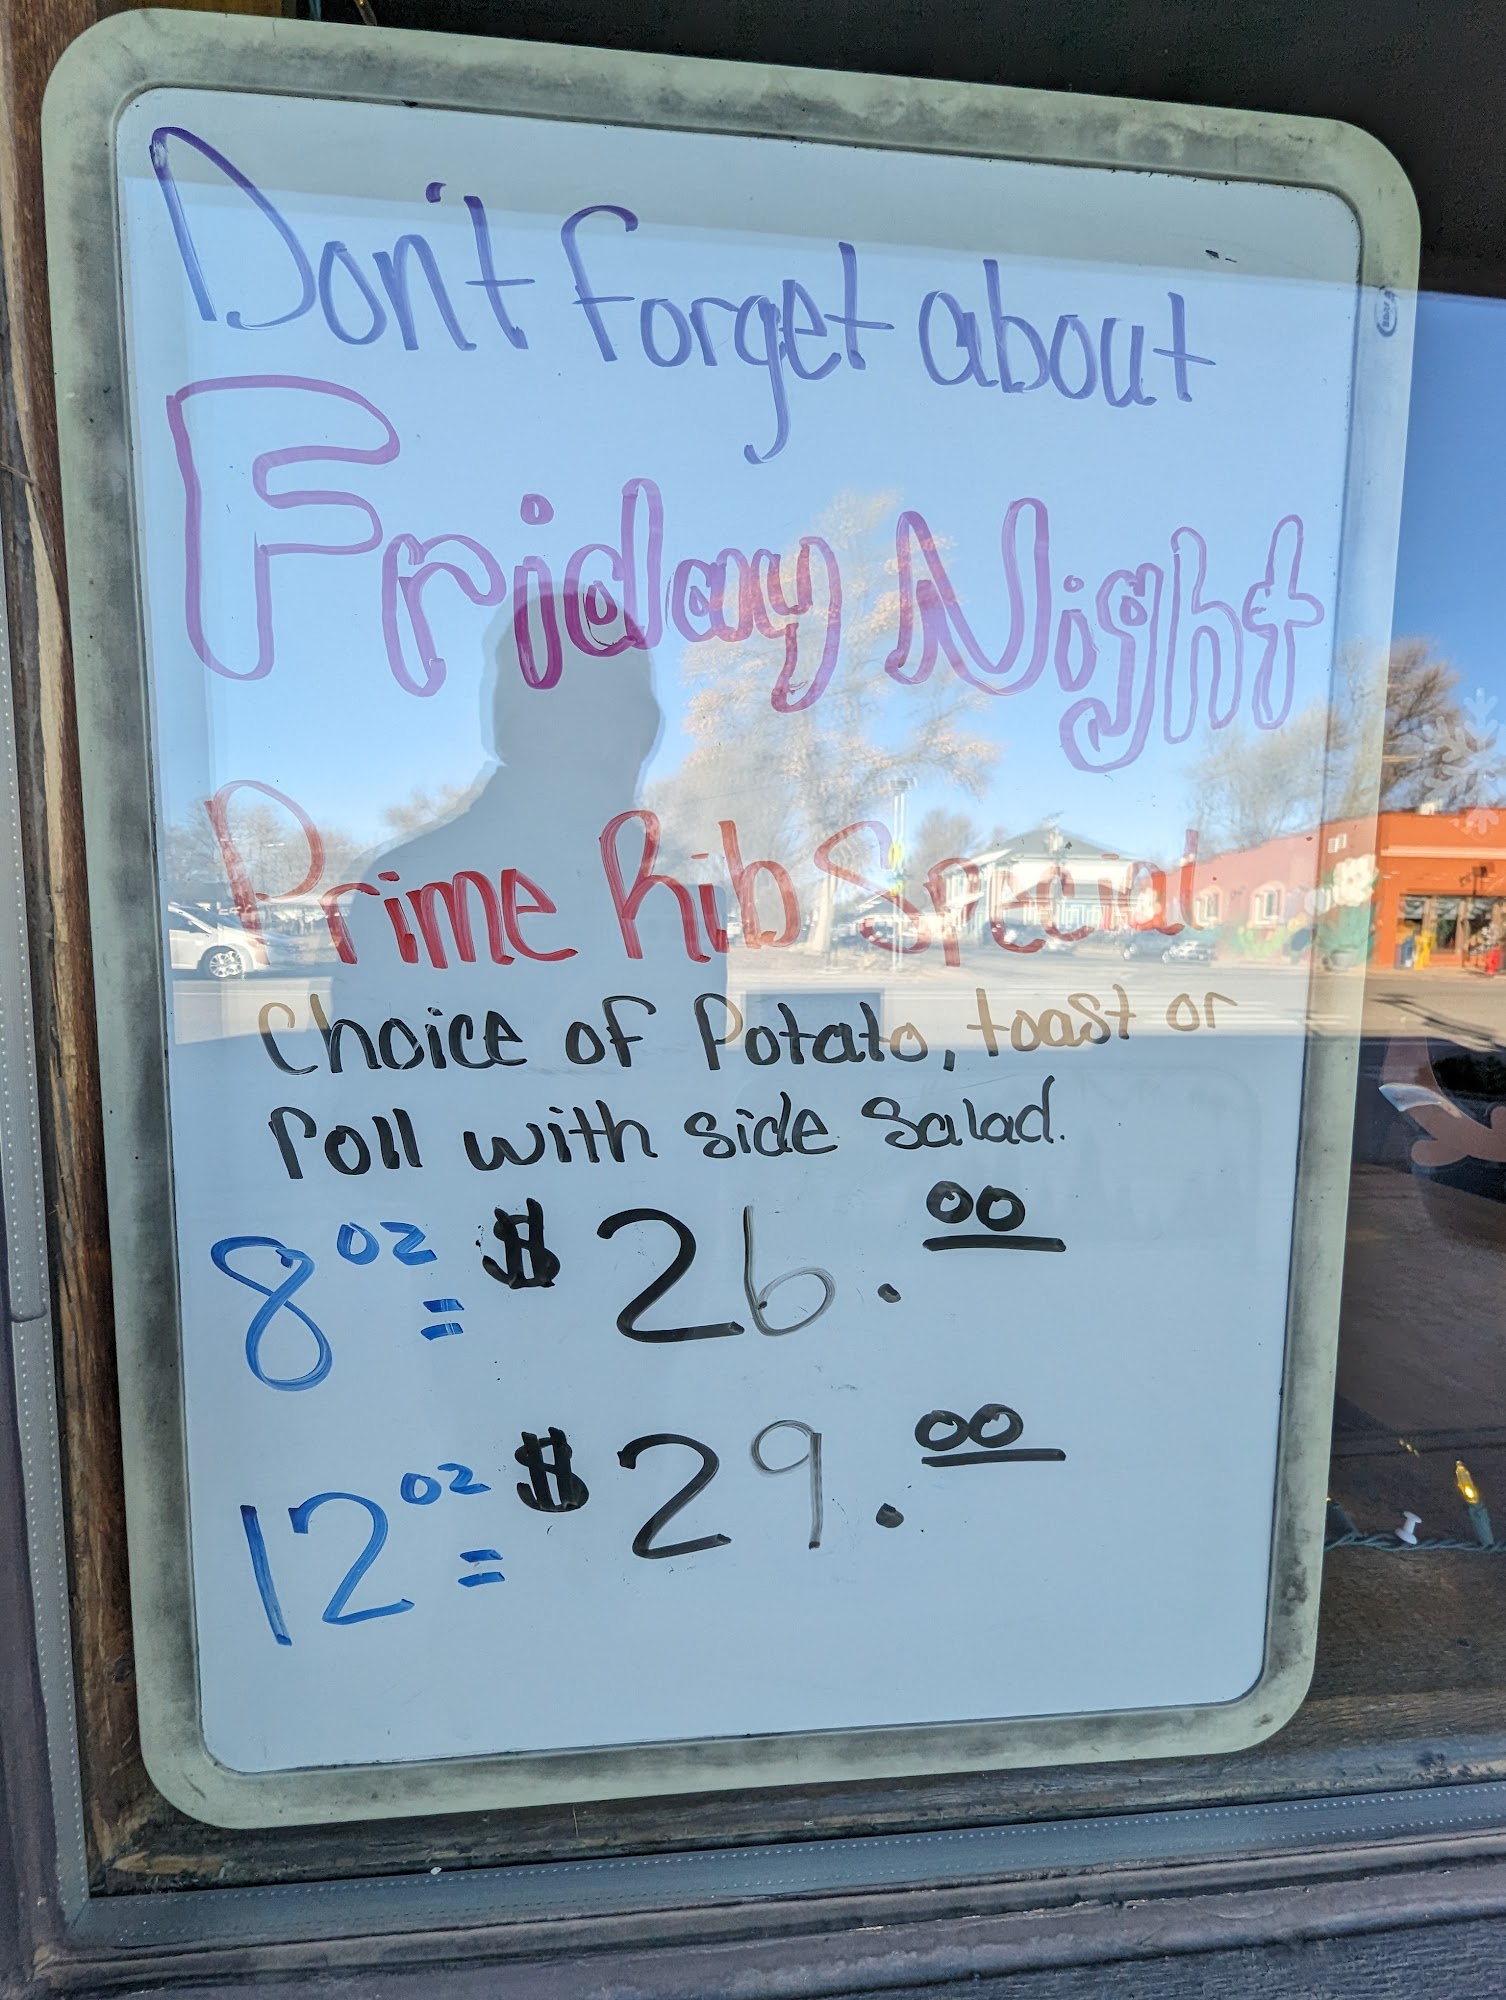 Don't forget about
Friday Night
Prime Rib Special
Choice of Potato, toast or
roll with side salad.
8 oz = $26.00
12 oz = $29.00